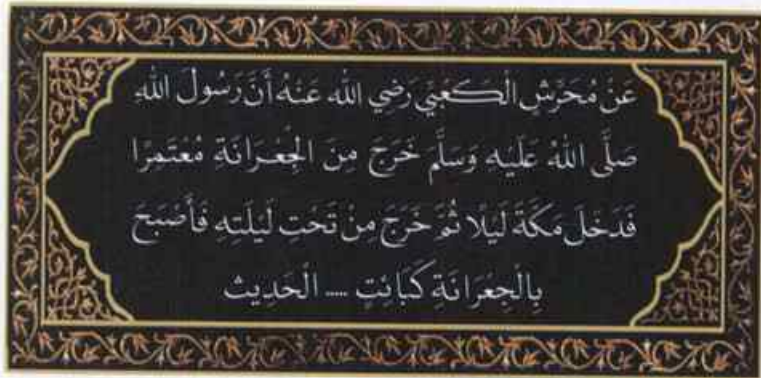 عَنْ مُحَرِّشٍ الْكَعْبِيِّ رَضِيَ اللهُ عَنْهُ أَنَّ رَسُولَ اللهِ
صَلَّى اللهُ عَلَيْهِ وَسَلَّمَ خَرَجَ مِنَ الْجِعْرَانَةِ مُعْتَمِرًا
فَدَخَلَ مَكَّةَ لَيْلًا ثُمَّ خَرَجَ مِنْ تَحْتِ لَيْلَتِهِ فَأَصْبَحَ
بِالْجِعْرَانَةِ كَبَائِتٍ .... الْحَدِيث